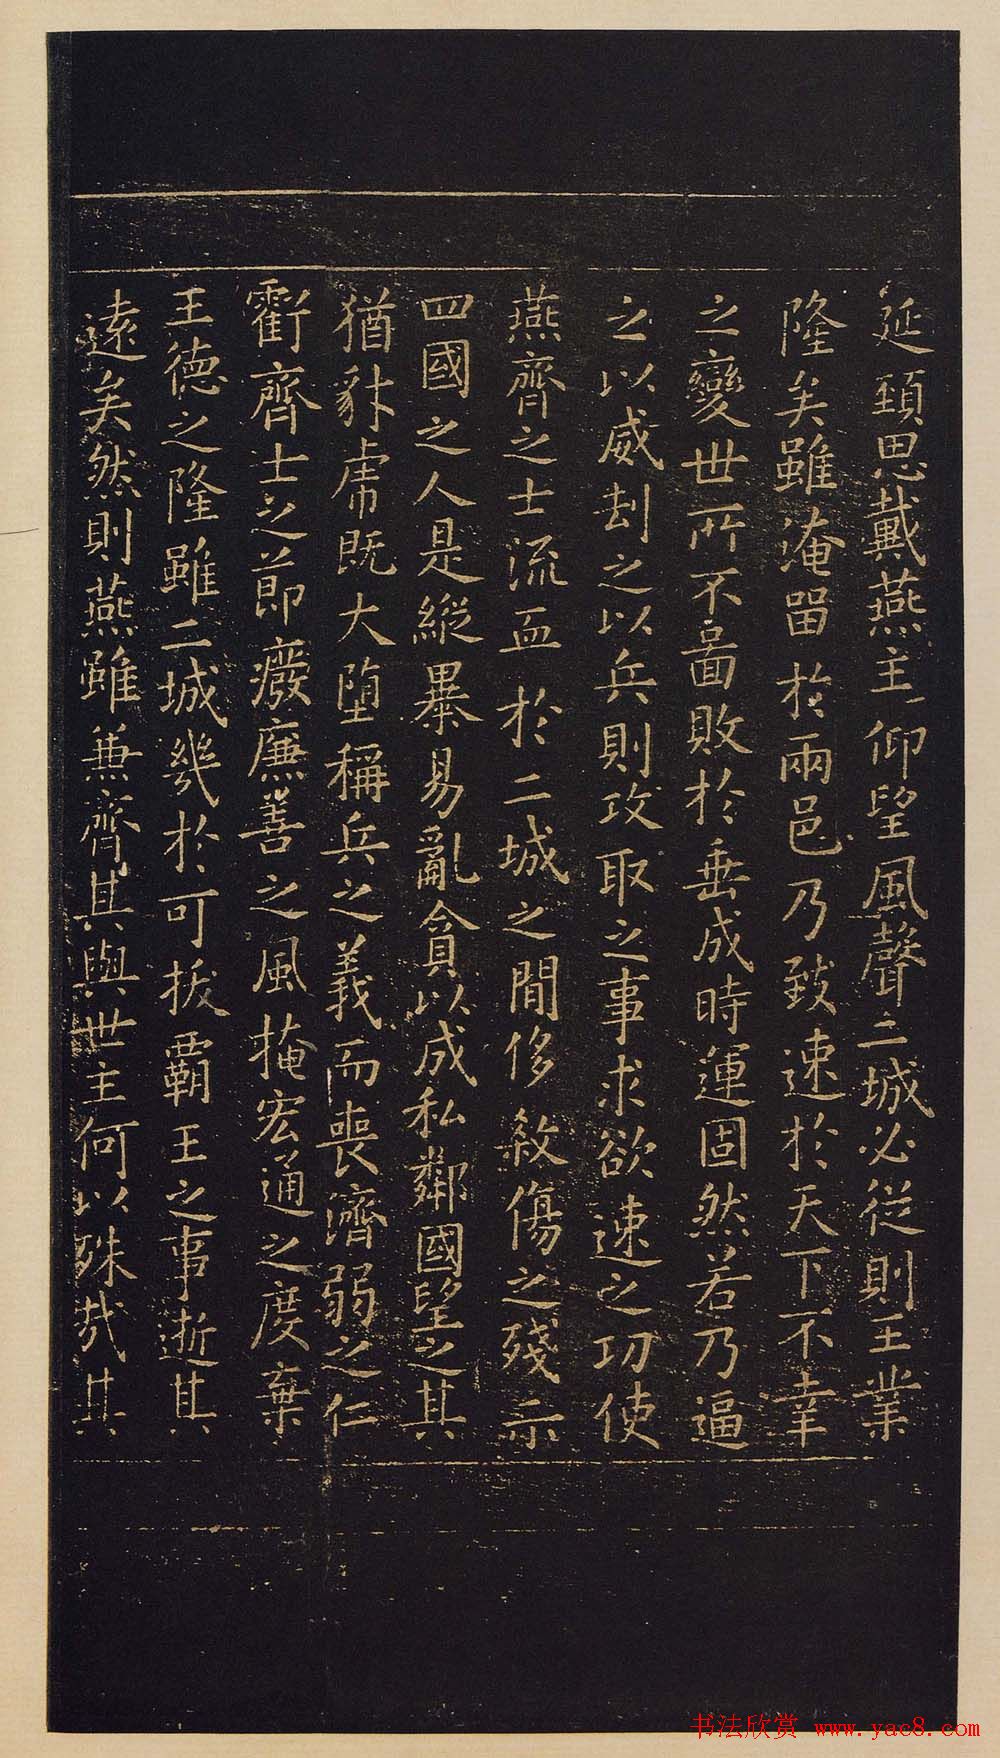 延頸思戴燕主仰望風聲二城必從則王業
隆矣雖淹留於兩邑乃致速於天下不幸
之變世所不圖敗於垂成時運固然若乃逼
之以威刧之以兵則攻取之事求欲速之功使
燕齊之士流血於二城之間侈殺傷之殘示
四國之人是縱暴易亂貪以成私鄰國望之其
猶豺虎既大墮稱兵之義而喪濟弱之仁
虧齊士之節廢廉善之風掩宏通之度棄
王德之隆雖二城幾於可拔霸王之事逝其
遠矣然則燕雖兼齊其與世主何以殊哉其
书法欣赏 www.yac8.com